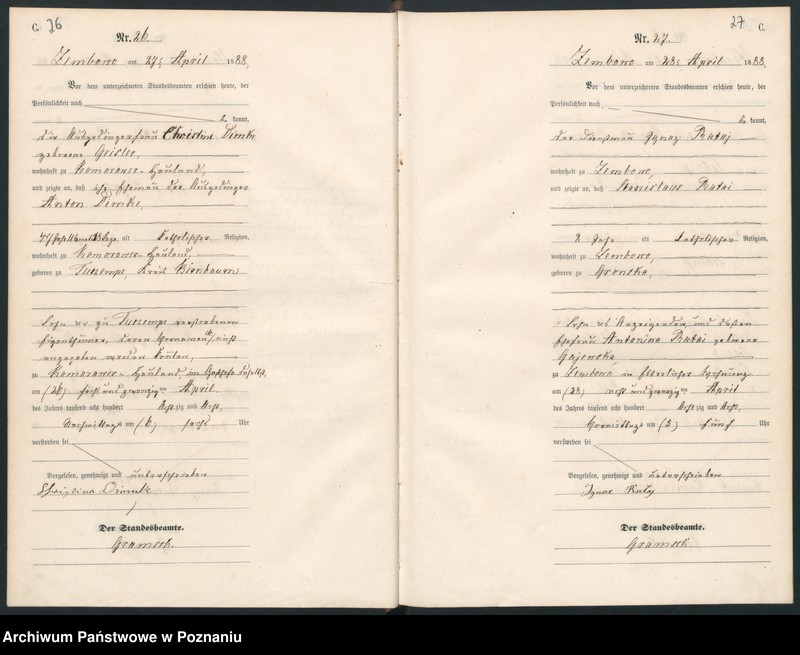 C. 26
Nr. 26.
Zembowo am 27t April 1888,
Vor dem unterzeichneten Standesbeamten erschien heute, der
Persönlichkeit nach
be kannt,
die Ausgedingerfrau Christine Dimke
geborene Geisler,
wohnhaft zu Komorowo-Hauland,
und zeigte an, daß ihr Ehemann der Ausgedinger
Anton Dimke,
77 Jahr alt katholischer Religion,
wohnhaft zu Komorowo Hauland,
geboren zu Tuczempe, Kreis Birnbaum
Sohn der zu Tuczempe verstorbenen
Eigenthümer, deren Vornamen nicht
angegeben werden können,
zu Komorowo-Hauland im
am (26) sechs und zwanzigten April
des Jahres tausend acht hundert Acht zig und Acht,
Nachmittags um (6) sechs Uhr
verstorben sei
Vorgelesen, genehmigt und unterschrieben
Christina Dimmke
Der Standesbeamte.
Gramsch.
27 C.
Nr. 27.
Zembowo am 28t April 1888,
Vor dem unterzeichneten Standesbeamten erschien heute, der
Persönlichkeit nach
be kannt,
der Dienstmann Ignaz Rataj
wohnhaft zu Zembowo,
und zeigte an, daß Stanislaus Ratai
2 Jahr alt katholischer Religion,
wohnhaft zu Zembowo,
geboren zu Gronsko,
Sohn des Anzeigenden und dessen
Ehefrau Antonina Ratai geborene
Gajewska,
zu Zembowo in elterlicher Wohnung
am (28) acht und zwanzigten April
des Jahres tausend acht hundert Acht zig und Acht,
Vormittags um (5) fünf Uhr
verstorben sei
Vorgelesen, genehmigt und unterschrieben
Ignac Rataj
Der Standesbeamte.
Gramsch.
Archiwum Państwowe w Poznaniu